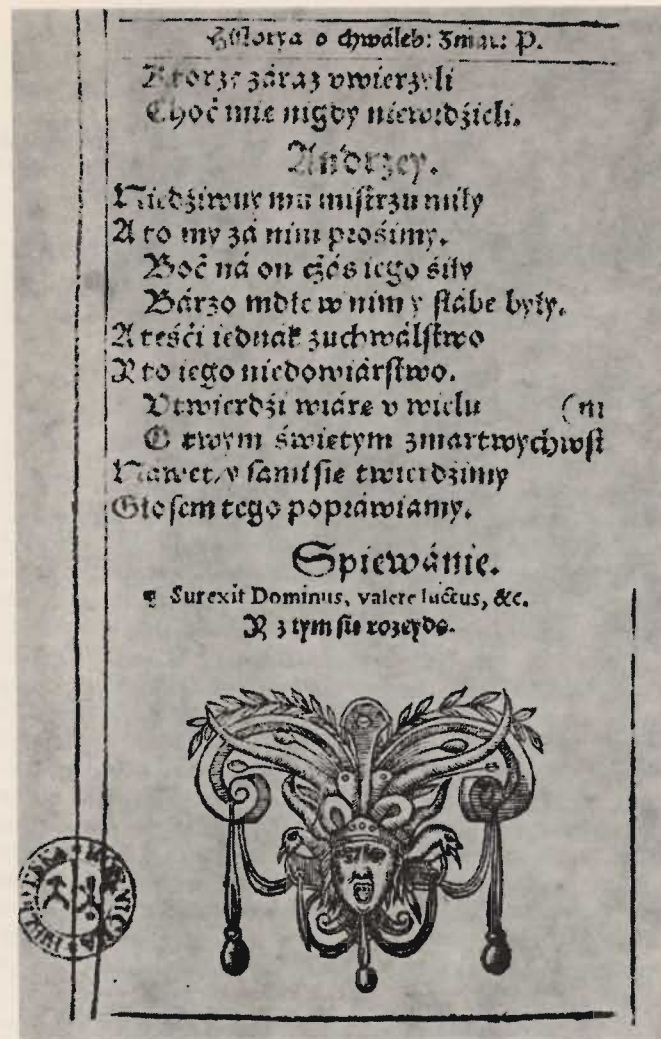 Historya o chwáleb: Zmar: P.
Ktorzy záraz vwierzyli
Choć mie nigdy niewidźieli.
Andrzey.
Niedźiwuy mu mistrzu miły
A to my zá nim prośimy.
Boć ná on cżás iego śiły
Bárzo mdłe w nim y słábe były.
A treśći iednak zuchwálstwo
Y to iego niedowiárstwo.
Vtwierdźi wiáre v wielu (ni
O twym świetym zmartwychwst
Nawet y sami sie twierdźimy
Głosem tego popráwiamy.
Spiewánie.
¶ Surexit Dominus, valete luctus, &c.
Y z tym sie rozeydą.